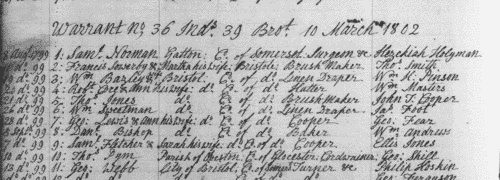 Warrant No. 36 Ind. 39 Brot. 10 March 1802
99 1: Saml. Norman Yatton Co. of Somerset Surgeon & Hezekiah Holyman
d. 99 2: Francis & Martha his wife Bristol Brush Maker Thos. Smith
d. 99 3: Wm. Bazley d. Bristol Co. of d. Linen Draper Wm. K. Pinson
d. 99 4: Robt. & Ann his wife d. Co. of d. Hatter Wm. Masters
d. 99 5: Thos. Jones d. Co. of d. Brush Maker John T. Cooper
d. 99 6: Wm. d. Co. of d. Linen Draper Jas. Foot
d. 99 7: Geo. Lewis & Ann his wife d. Co. of d. Cooper Geo. Fear
99 8: Danl. Bishop d. Co. of d. Baker Wm. Andrews
7 d. 99 9: Saml. Fletcher & Sarah his wife d. Co. of d. Cooper Ellis Jones
10 d. 99 10: Thos. Pym Parish of Co. of Glocester Cordwainer Geo. Shill
13 d. 99 11: Geo. Webb City of Bristol Co. of Turner &c. Philip Hoskin
Geo. Ferguson